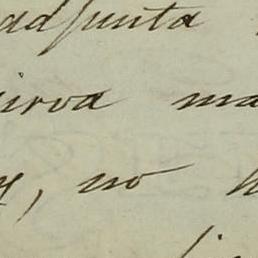 adjunta
sirva ma
, no